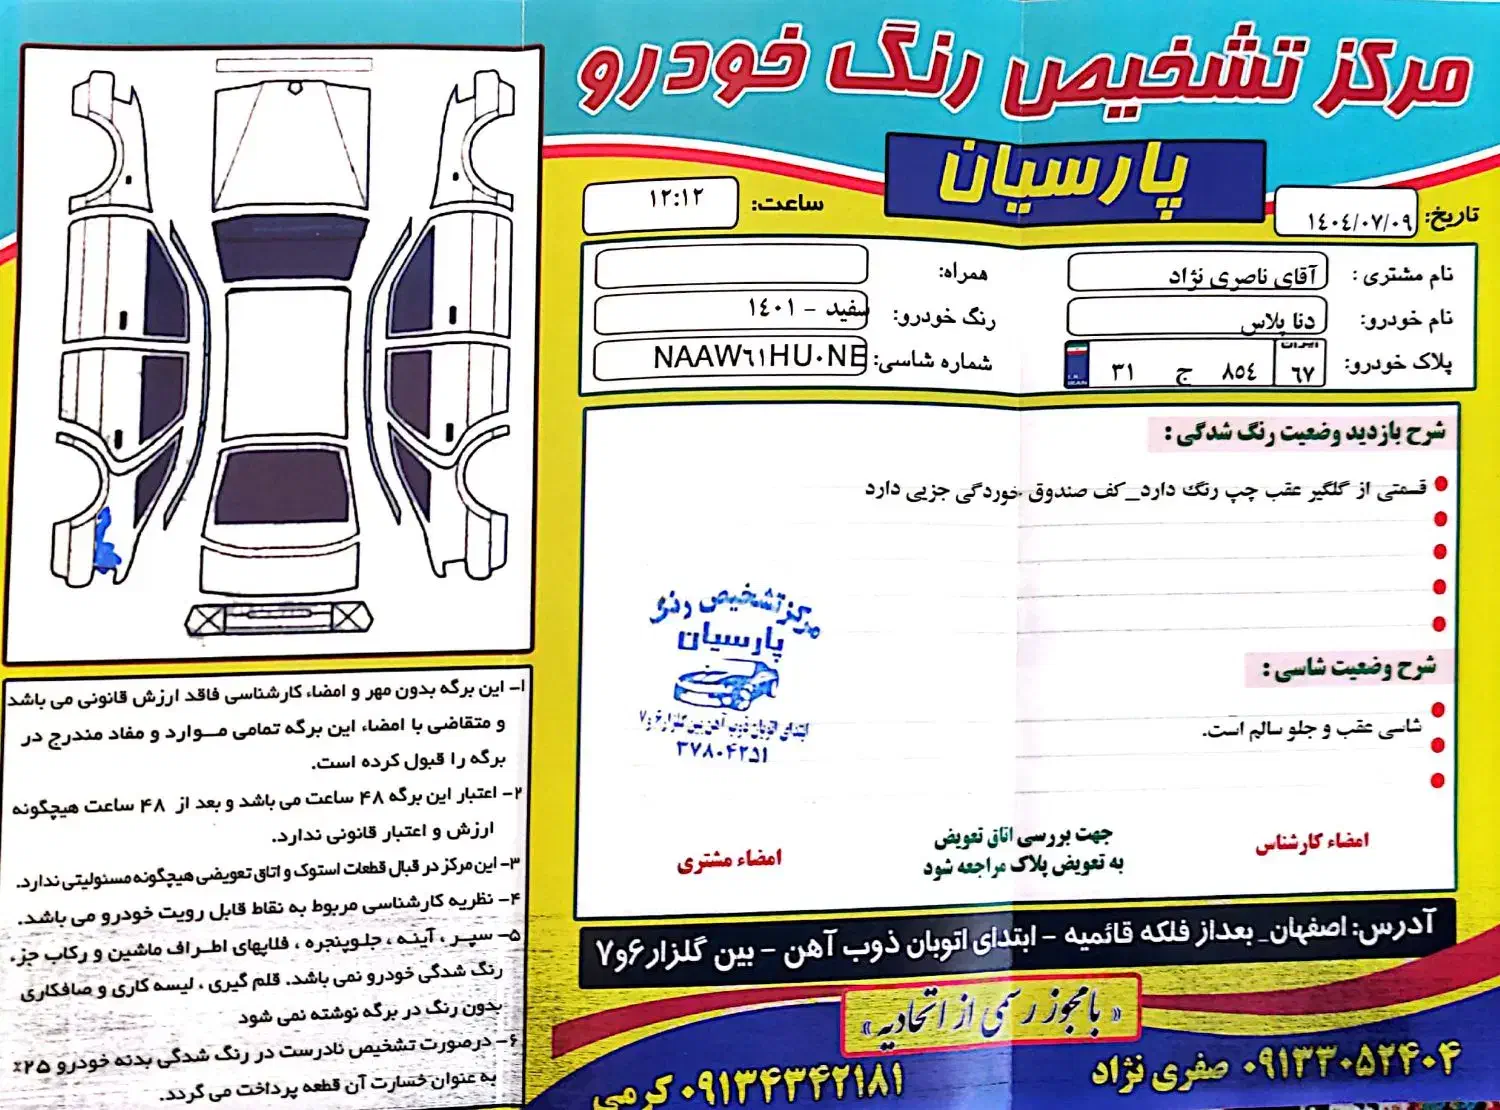 مرکز تشخیص رنگ خودرو
پارسیان
تاریخ: ۱٤۰٤/۰۷/۰۹
ساعت: ۱۲:۱۲
نام مشتری : آقای ناصری نژاد
همراه:
نام خودرو: دنا پلاس
رنگ خودرو: سفید - ۱٤۰۱
پلاک خودرو: ایران ۶۷ ۸۵٤ ج ۳۱
I.R. IRAN
شماره شاسی: NAAW٦١HU٠NE
شرح بازدید وضعیت رنگ شدگی :
قسمتی از گلگیر عقب چپ رنگ دارد_کف صندوق خوردگی جزیی دارد
شرح وضعیت شاسی :
شاسی عقب و جلو سالم است.
مرکز تشخیص رنگ
پارسیان
ابتدای اتوبان ذوب آهن بین گلزار ۶و۷
۳۷۸۰۴۲۵۱
امضاء کارشناس
جهت بررسی اتاق تعویض
به تعویض پلاک مراجعه شود
امضاء مشتری
آدرس: اصفهان_ بعداز فلکه قائمیه - ابتدای اتوبان ذوب آهن - بین گلزار ۶و۷
« با مجوز رسمی از اتحادیه »
۰۹۱۳۳۰۵۲۴۰۴ صفری نژاد
۰۹۱۳۴۳۴۲۱۸۱ کرمی
۱- این برگه بدون مهر و امضاء کارشناسی فاقد ارزش قانونی می باشد
و متقاضی با امضاء این برگه تمامی موارد و مفاد مندرج در
برگه را قبول کرده است.
۲- اعتبار این برگه ۴۸ ساعت می باشد و بعد از ۴۸ ساعت هیچگونه
ارزش و اعتبار قانونی ندارد.
۳- این مرکز در قبال قطعات استوک و اتاق تعویضی هیچگونه مسئولیتی ندارد.
۴- نظریه کارشناسی مربوط به نقاط قابل رویت خودرو می باشد.
۵- سپر ، آینه ، جلوپنجره ، فلاپهای اطراف ماشین و رکاب جز،
رنگ شدگی خودرو نمی باشد. قلم گیری ، لیسه کاری و صافکاری
بدون رنگ در برگه نوشته نمی شود
۶- درصورت تشخیص نادرست در رنگ شدگی بدنه خودرو ۲۵٪
به عنوان خسارت آن قطعه پرداخت می گردد.